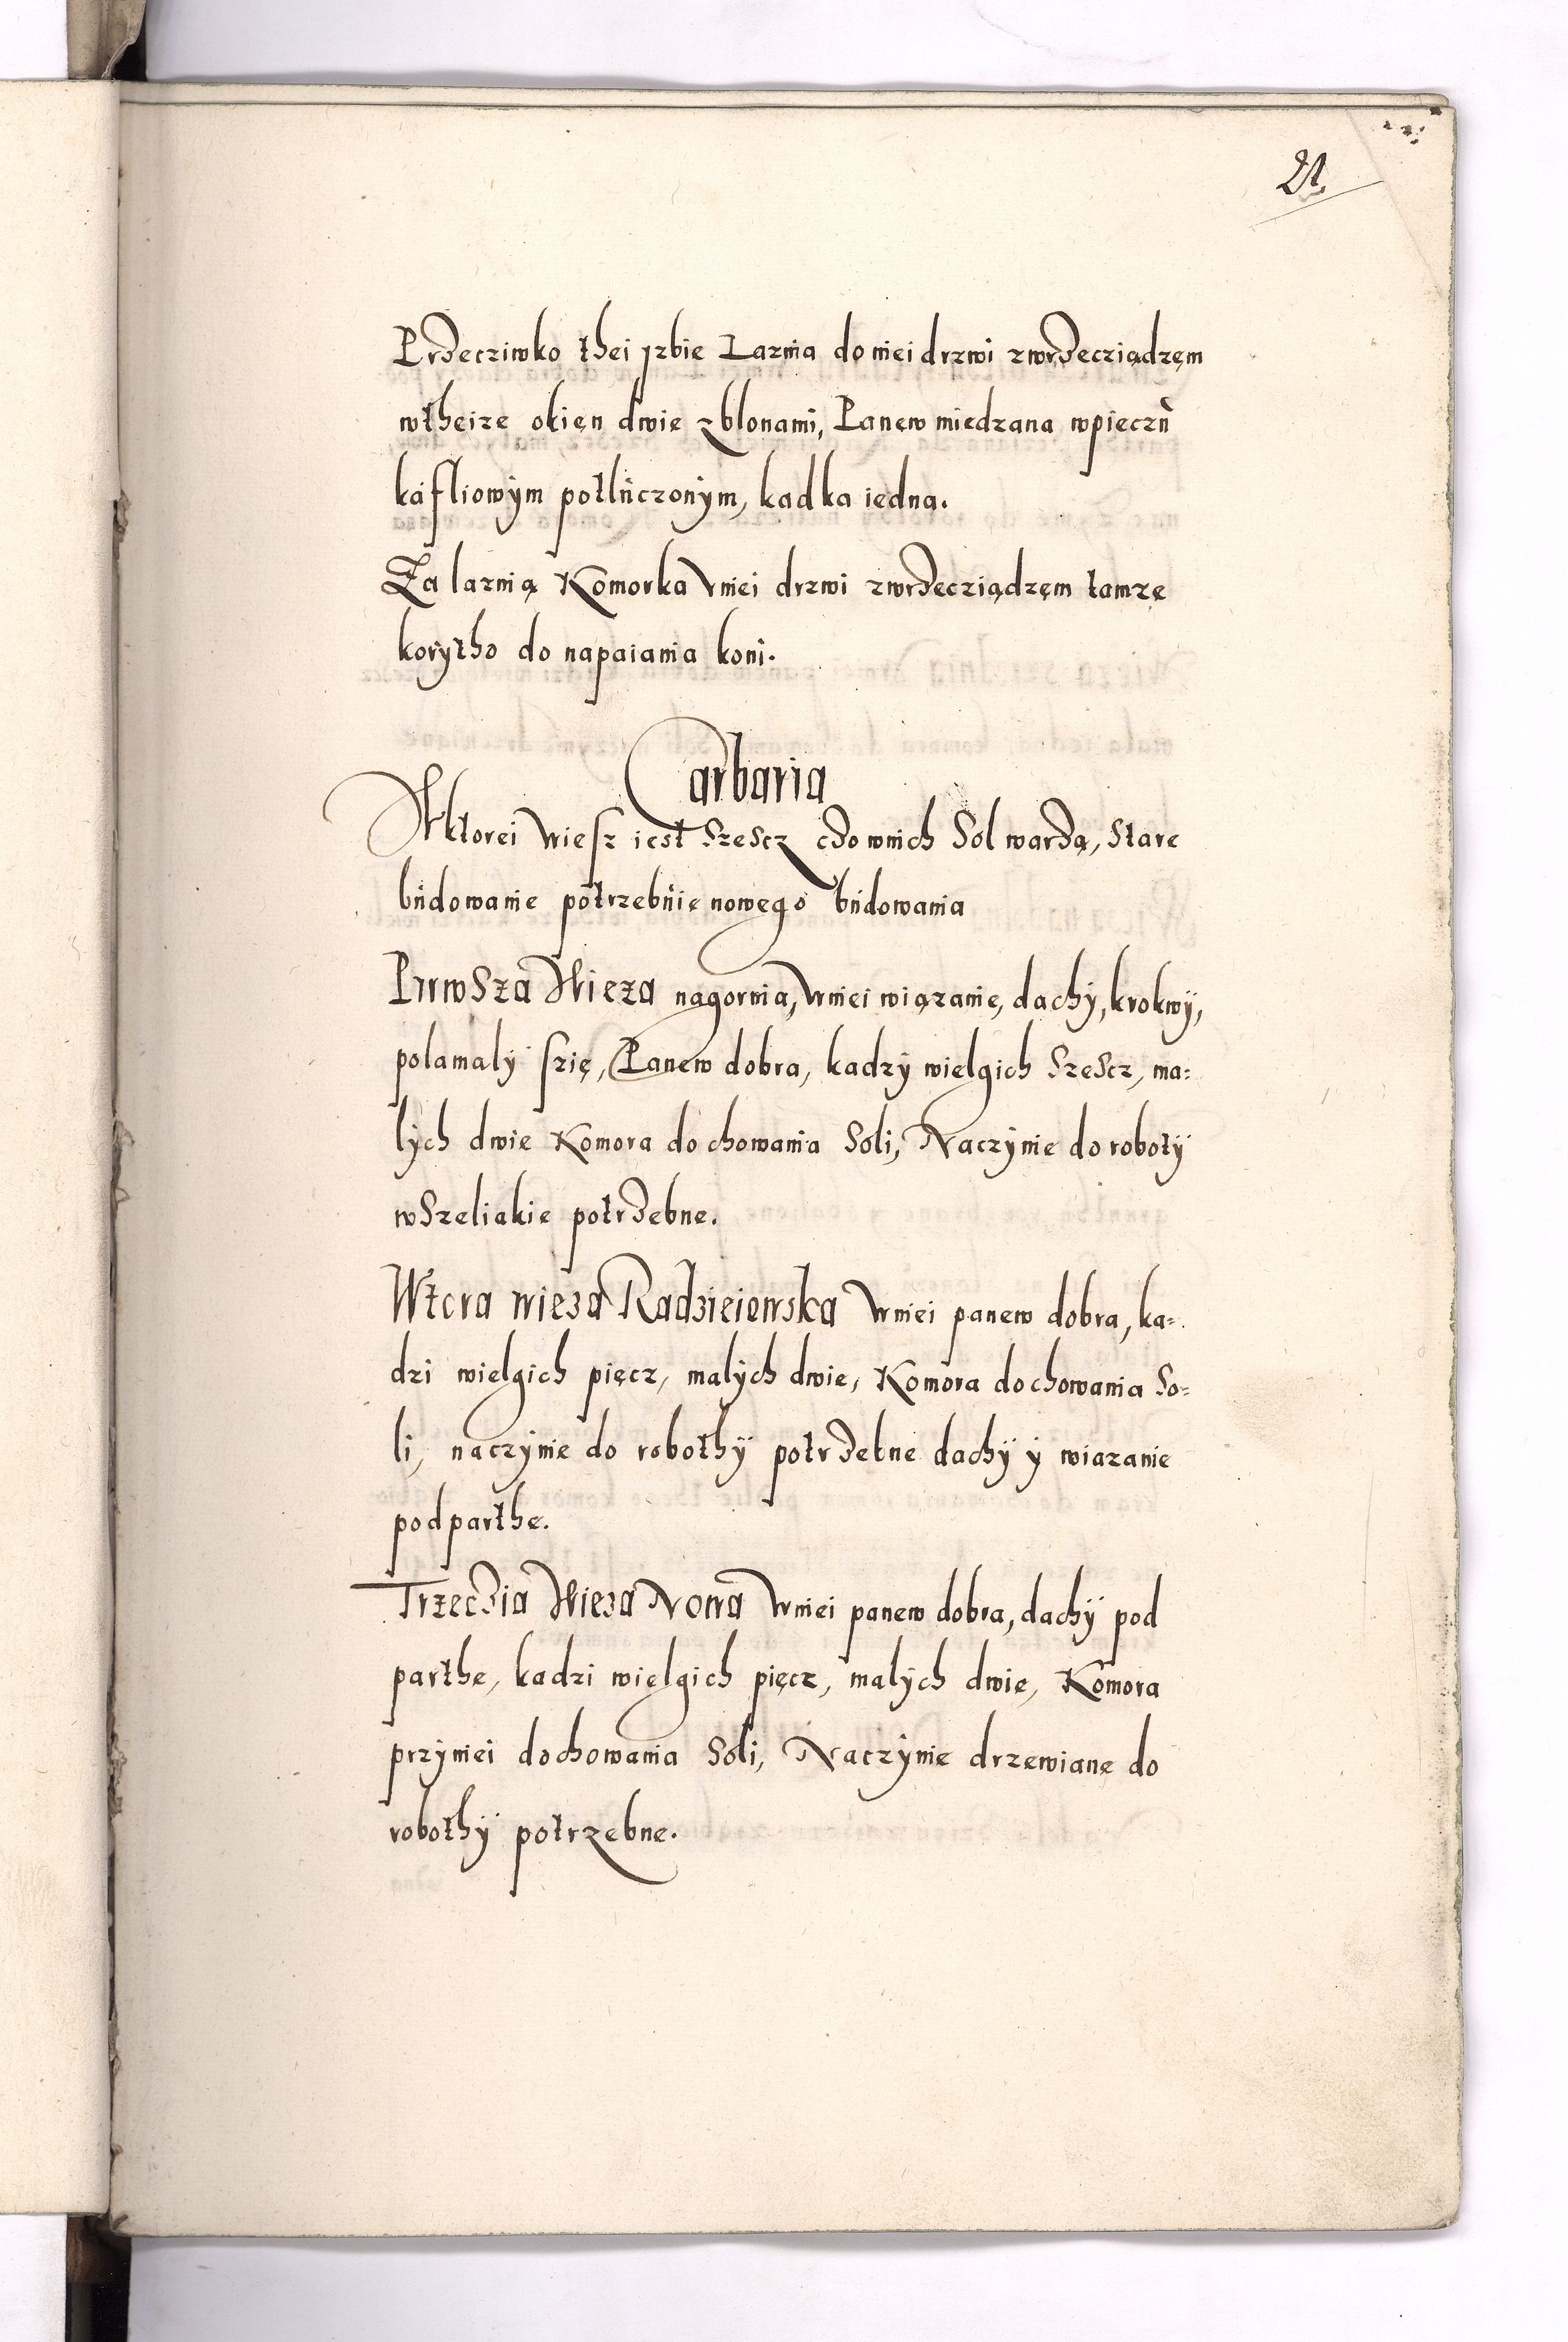 21
Przecziwko thei yzbie Laznia do niei drzwi zwrzecziądzęm
wtheize okięn dwie z blonami, Panew miedzana wpieczu
kafliowÿm potluczonÿm, kadka iedna.
Za laznią Komorka Wniei drzwi zwrzecziądzęm tamze
korÿtho do napaiania koni.
Carbaria
Wktorei Wiesz iest szescz czo wnich Sol warzą, stare
budowanie potrzebuie nowego budowania
Pirwsza Wieza nagornia, Wniei wiązanie, dachÿ, krokwÿ,
polamalÿ szię, Panew dobra, kadzÿ wielgich szescz, ma-
lÿch dwie Komora do chowania Soli, Naczÿnie do robotÿ
wszeliakie potrzebne.
Wtora wieza Radzieiewska Wniei panew dobra, ka-
dzi wielgich pięcz, malÿch dwie, Komora do chowania So-
li, naczÿnie do robothÿ potrzebne dachÿ ÿ wiazanie
podparthe.
Trzeczia Wieza Nowa Wniei panew dobra, dachÿ pod
parthe, kadzi wielgich pięcz, malÿch dwie, Komora
przÿniei do chowania Soli, Naczÿnie drzewiane do
robothÿ potrzebne.